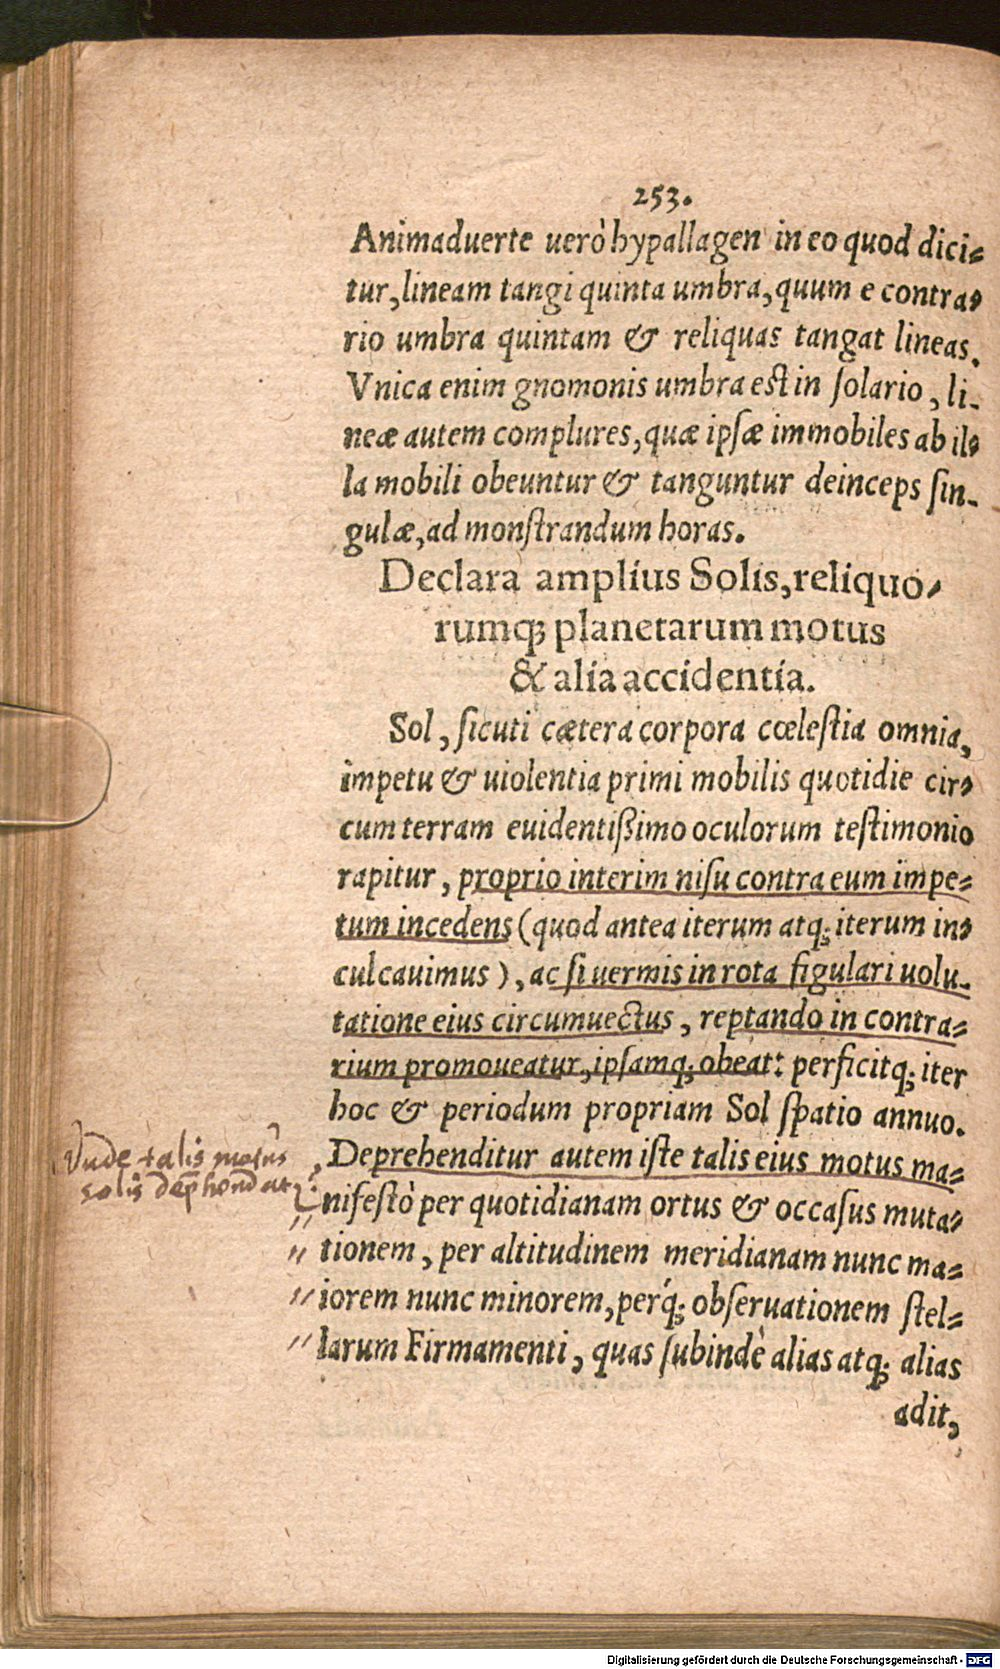 253.
Animaduerte uerò hypallagen in eo quod dici=
tur, lineam tangi quinta umbra, quum e contra=
rio umbra quintam & reliquas tangat lineas.
Vnica enim gnomonis umbra est in ſolario, li-
neæ autem complures, quæ ipſæ immobiles ab il=
la mobili obeuntur & tanguntur deinceps ſin-
gulæ, ad monſtrandum horas.
Declara amplius Solis, reliquo-
rumq; planetarum motus
& alia accidentia.
Sol, ſicuti cætera corpora cœleſtia omnia,
impetu & uiolentia primi mobilis quotidie cir=
cum terram euidentiſsimo oculorum teſtimonio
rapitur, proprio interim niſu contra eum impe=
tum incedens (quod antea iterum atq; iterum in=
culcauimus), ac ſi uermis in rota figulari uolu-
tatione eius circumuectus, reptando in contra=
rium promoueatur, ipſamq; obeat: perficitq; iter
hoc & periodum propriam Sol ſpatio annuo.
Deprehenditur autem iſte talis eius motus ma=
Unde talis motus
solis
nifeſtò per quotidianam ortus & occaſus muta=
tionem, per altitudinem meridianam nunc ma=
iorem nunc minorem, perq́; obſeruationem ſtel=
larum Firmamenti, quas ſubindè alias atq; alias
adit,
Digitalisierung gefördert durch die Deutsche Forschungsgemeinschaft - DFG